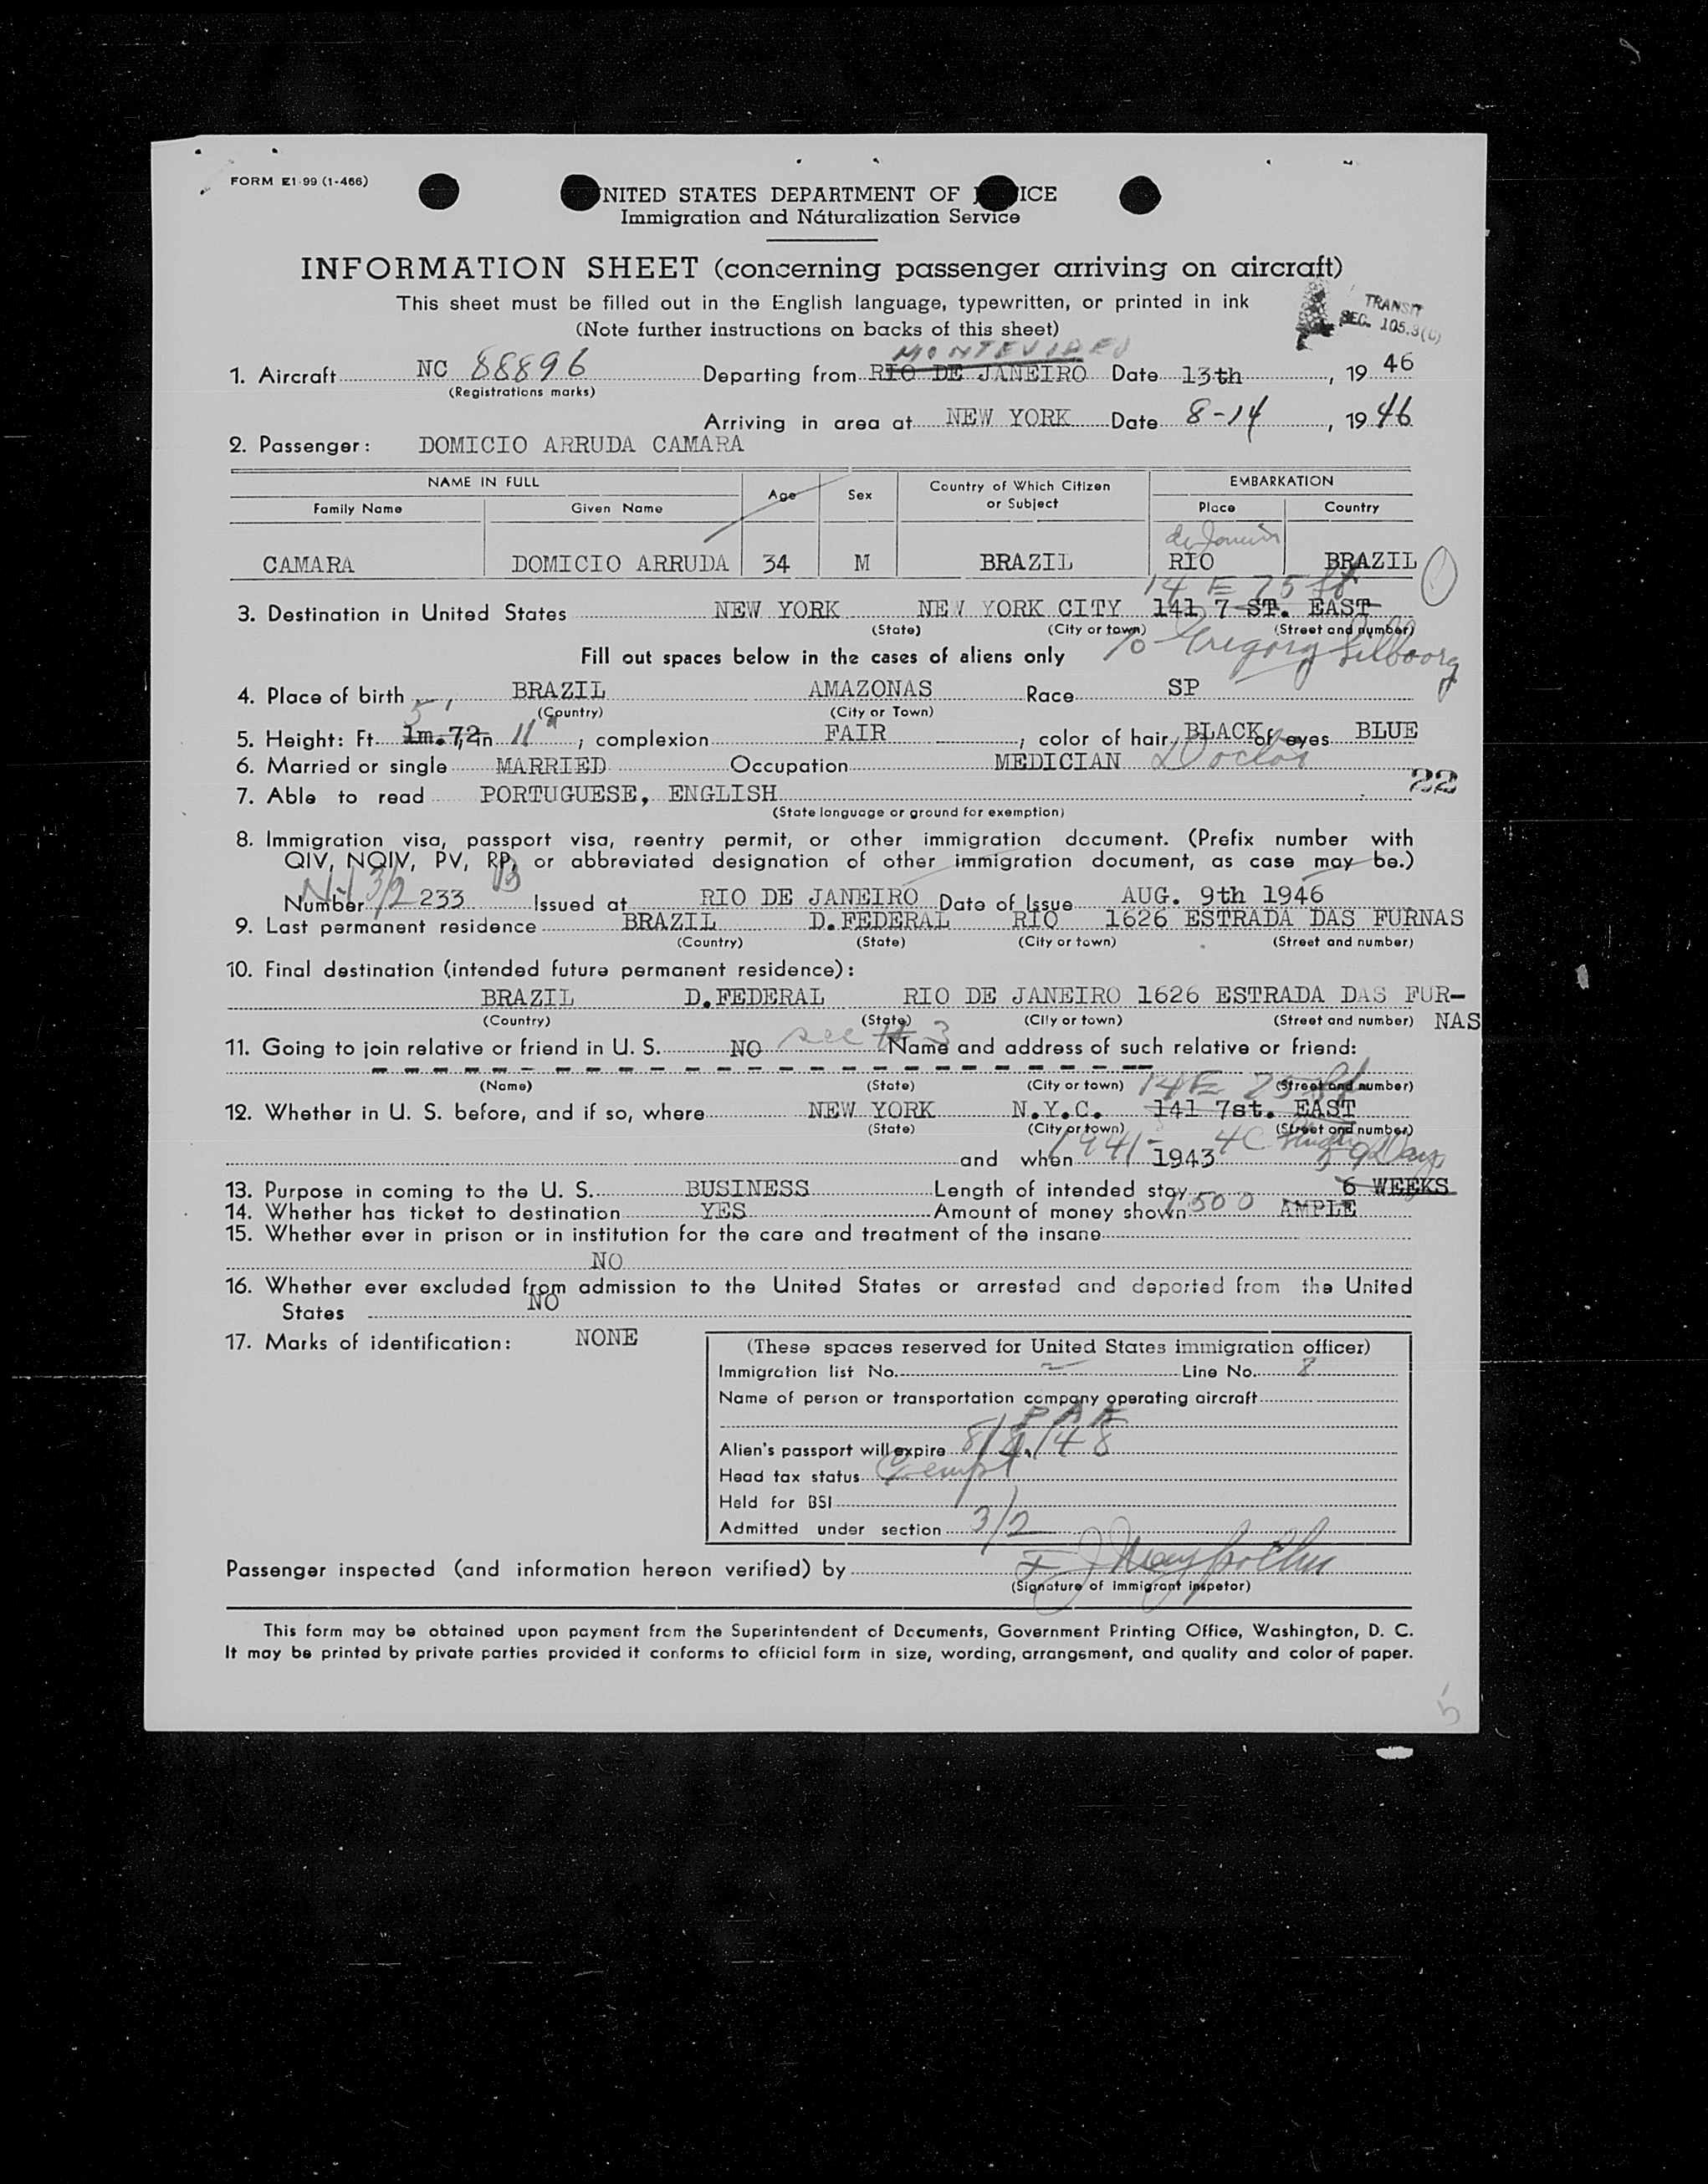 FORM E1-99 (1-466)
NITED STATES DEPARTMENT OF J ICE
Immigration and Naturalization Service
INFORMATION SHEET (concerning passenger arriving on aircraft)
This sheet must be filled out in the English language, typewritten, or printed in ink
(Note further instructions on backs of this sheet)
TRANSIT
SEC. 105.3(C)
MONTEVIDEO
1. Aircraft NC 88896 Departing from RIO DE JANEIRO Date 13th, 19 46
(Registrations marks)
Arriving in area at NEW YORK Date 8-14, 19 46
2. Passenger: DOMICIO ARRUDA CAMARA
NAME IN FULL Age Sex Country of Which Citizen or Subject EMBARKATION
Family Name Given Name Place Country
de Janeiro
CAMARA DOMICIO ARRUDA 34 M BRAZIL RIO BRAZIL
14 E 75 St
3. Destination in United States NEW YORK NEW YORK CITY 141 7 ST. EAST
(State) (City or town) (Street and number)
Fill out spaces below in the cases of aliens only c/o Gregory Zilboorg
4. Place of birth BRAZIL AMAZONAS Race SP
(Country) (City or Town)
5. Height: Ft. 5' 1m.72, in 11"; complexion FAIR; color of hair, BLACK of eyes BLUE
6. Married or single MARRIED Occupation MEDICIAN Doctor
22
7. Able to read PORTUGUESE, ENGLISH
(State language or ground for exemption)
8. Immigration visa, passport visa, reentry permit, or other immigration document. (Prefix number with
QIV, NQIV, PV, RP, or abbreviated designation of other immigration document, as case may be.)
Number 3/2 233 Issued at RIO DE JANEIRO Date of Issue AUG. 9th 1946
9. Last permanent residence BRAZIL D.FEDERAL RIO 1626 ESTRADA DAS FURNAS
(Country) (State) (City or town) (Street and number)
10. Final destination (intended future permanent residence):
BRAZIL D.FEDERAL RIO DE JANEIRO 1626 ESTRADA DAS FUR-
(Country) (State) (City or town) (Street and number) NAS
11. Going to join relative or friend in U. S. NO see # 3 Name and address of such relative or friend:
(Name) (State) (City or town) (Street and number)
14 E 75 St
12. Whether in U. S. before, and if so, where NEW YORK N.Y.C. 141 7st. EAST
(State) (City or town) (Street and number)
and when 1941- 1943 4C 9 Days
13. Purpose in coming to the U. S. BUSINESS Length of intended stay 6 WEEKS
14. Whether has ticket to destination YES Amount of money shown 1500 AMPLE
15. Whether ever in prison or in institution for the care and treatment of the insane
NO
16. Whether ever excluded from admission to the United States or arrested and deported from the United
States NO
17. Marks of identification: NONE
(These spaces reserved for United States immigration officer)
Immigration list No. Line No. 8
Name of person or transportation company operating aircraft
P A A
Alien's passport will expire 8/8/48
Head tax status Exempt
Held for BSI
Admitted under section 3/2
Passenger inspected (and information hereon verified) by
(Signature of immigrant inspetor)
This form may be obtained upon payment from the Superintendent of Documents, Government Printing Office, Washington, D. C.
It may be printed by private parties provided it conforms to official form in size, wording, arrangement, and quality and color of paper.
5